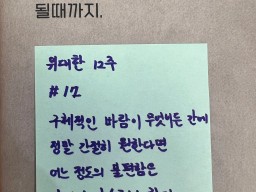 될때까지.
위대한 12주
#12
구체적인 바람이 무엇이든 간에
정말 간절히 원한다면
어느 정도의 불편함은